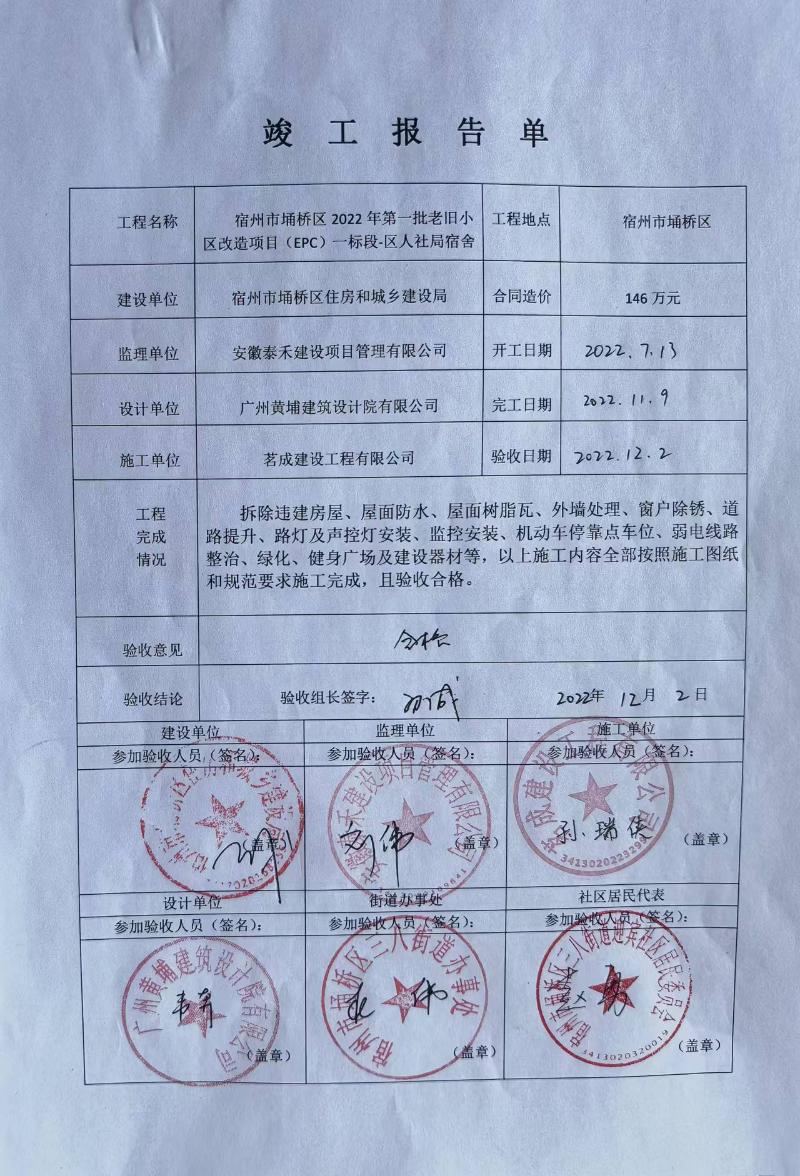 竣工报告单
工程名称
宿州市埇桥区 2022 年第一批老旧小
区改造项目（EPC）一标段-区人社局宿舍
工程地点
宿州市埇桥区
建设单位
宿州市埇桥区住房和城乡建设局
合同造价
146 万元
监理单位
安徽泰禾建设项目管理有限公司
开工日期
2022.7.13
设计单位
广州黄埔建筑设计院有限公司
完工日期
2022.11.9
施工单位
茗成建设工程有限公司
验收日期
2022.12.2
工程
完成
情况
拆除违建房屋、屋面防水、屋面树脂瓦、外墙处理、窗户除锈、道
路提升、路灯及声控灯安装、监控安装、机动车停靠点车位、弱电线路
整治、绿化、健身广场及建设器材等，以上施工内容全部按照施工图纸
和规范要求施工完成，且验收合格。
验收意见
合格
验收结论
验收组长签字：
2022年 12月 2日
建设单位
监理单位
施工单位
参加验收人员（签名）：
参加验收人员（签名）：
参加验收人员（签名）：
刘伟
孙瑞侠
（盖章）
（盖章）
（盖章）
茗成建设工程有限公司
3413020223290
设计单位
街道办事处
社区居民代表
参加验收人员（签名）：
参加验收人员（签名）：
参加验收人员（签名）：
广州黄埔建筑设计院有限公司
宿州市埇桥区三八街道办事处
宿州市埇桥区三八街道迎宾社区居民委员会
3413020320019
（盖章）
（盖章）
（盖章）